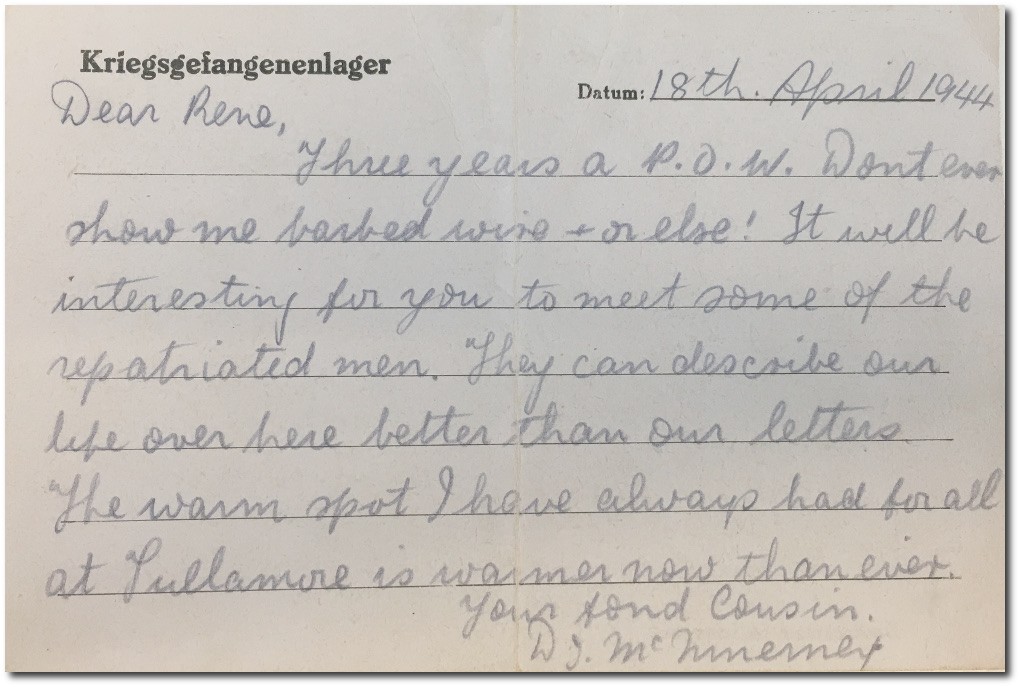 Kriegsgefangenenlager
Datum: 18th. April 1944
Dear Rene,
Three years a P.O.W. Dont ever
show me barbed wire + or else! It will be
interesting for you to meet some of the
repatriated men. They can describe our
life over here better than our letters
The warm spot I have always had for all
at Tullamore is warmer now than ever.
Your fond Cousin.
D J. McInerney